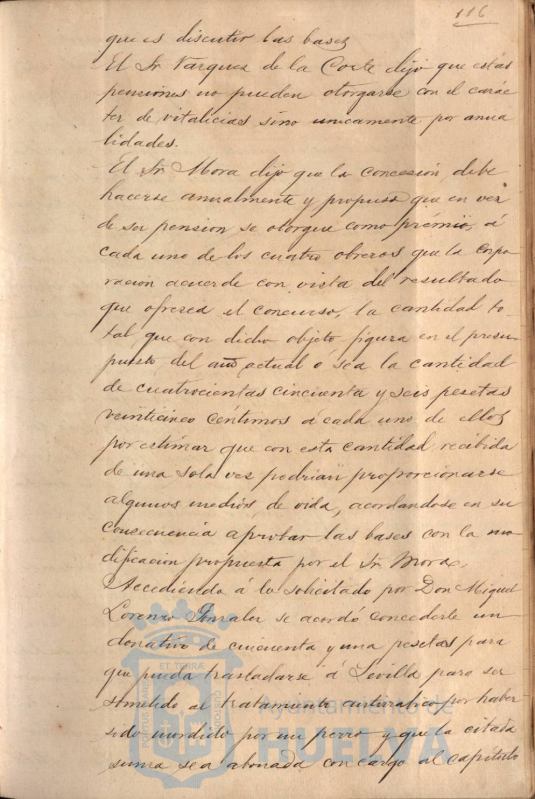 116
que es discutir las bases
El Sr Vazquez de la Corte dijo que estas
pensiones no pueden otorgarse con el carác
ter de vitalicias sino unicamente por anua
lidades.
El Sr Mora dijo que la concesión debe
hacerse anualmente y propuso que en vez
de ser pension se otorgue como prémio, á
cada uno de los cuatro obreros que la corpo-
ración acuerde con vista del resultado
que ofrezca el concurso, la cantidad to-
tal que con dicho objeto figura en el presu-
puesto del año actual ó sea la cantidad
de cuatrocientas cincuenta y seis pesetas
veinticinco céntimos á cada uno de ellos
por estimar que con esta cantidad recibida
de una sola vez podrian proporcionarse
algunos medios de vida, acordandose en su
consecuencia aprobar las bases con la mo
dificacion propuesta por el Sr Mora.
Accediendo á lo solicitado por Don Miguel
Lorenzo Gonzalez se acordó concederle un
donativo de cincuenta y una pesetas para
que pueda trasladarse á Sevilla para ser
sometido al tratamiento antirrabico por haber
sido mordido por un perro y que la citada
suma sea abonada con cargo al capitulo
PORTUS MARIS
ET TERRÆ
CUSTODIA
Ayuntamiento de
HUELVA